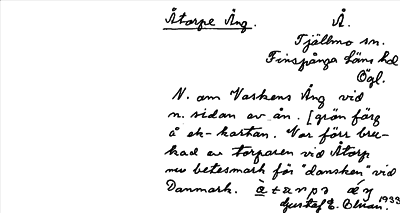 Åtorpe Äng. Å.
Tjällmo sn.
Finspånga läns hd
Ögl.
N. om Varkens Äng vid
n. sidan av ån. [grön färg
å ek-kartan. Var förr bru-
kad av torparen vid Åtorp
nu betesmark för "dansken" vid
Danmark.
Gustaf E. 1933